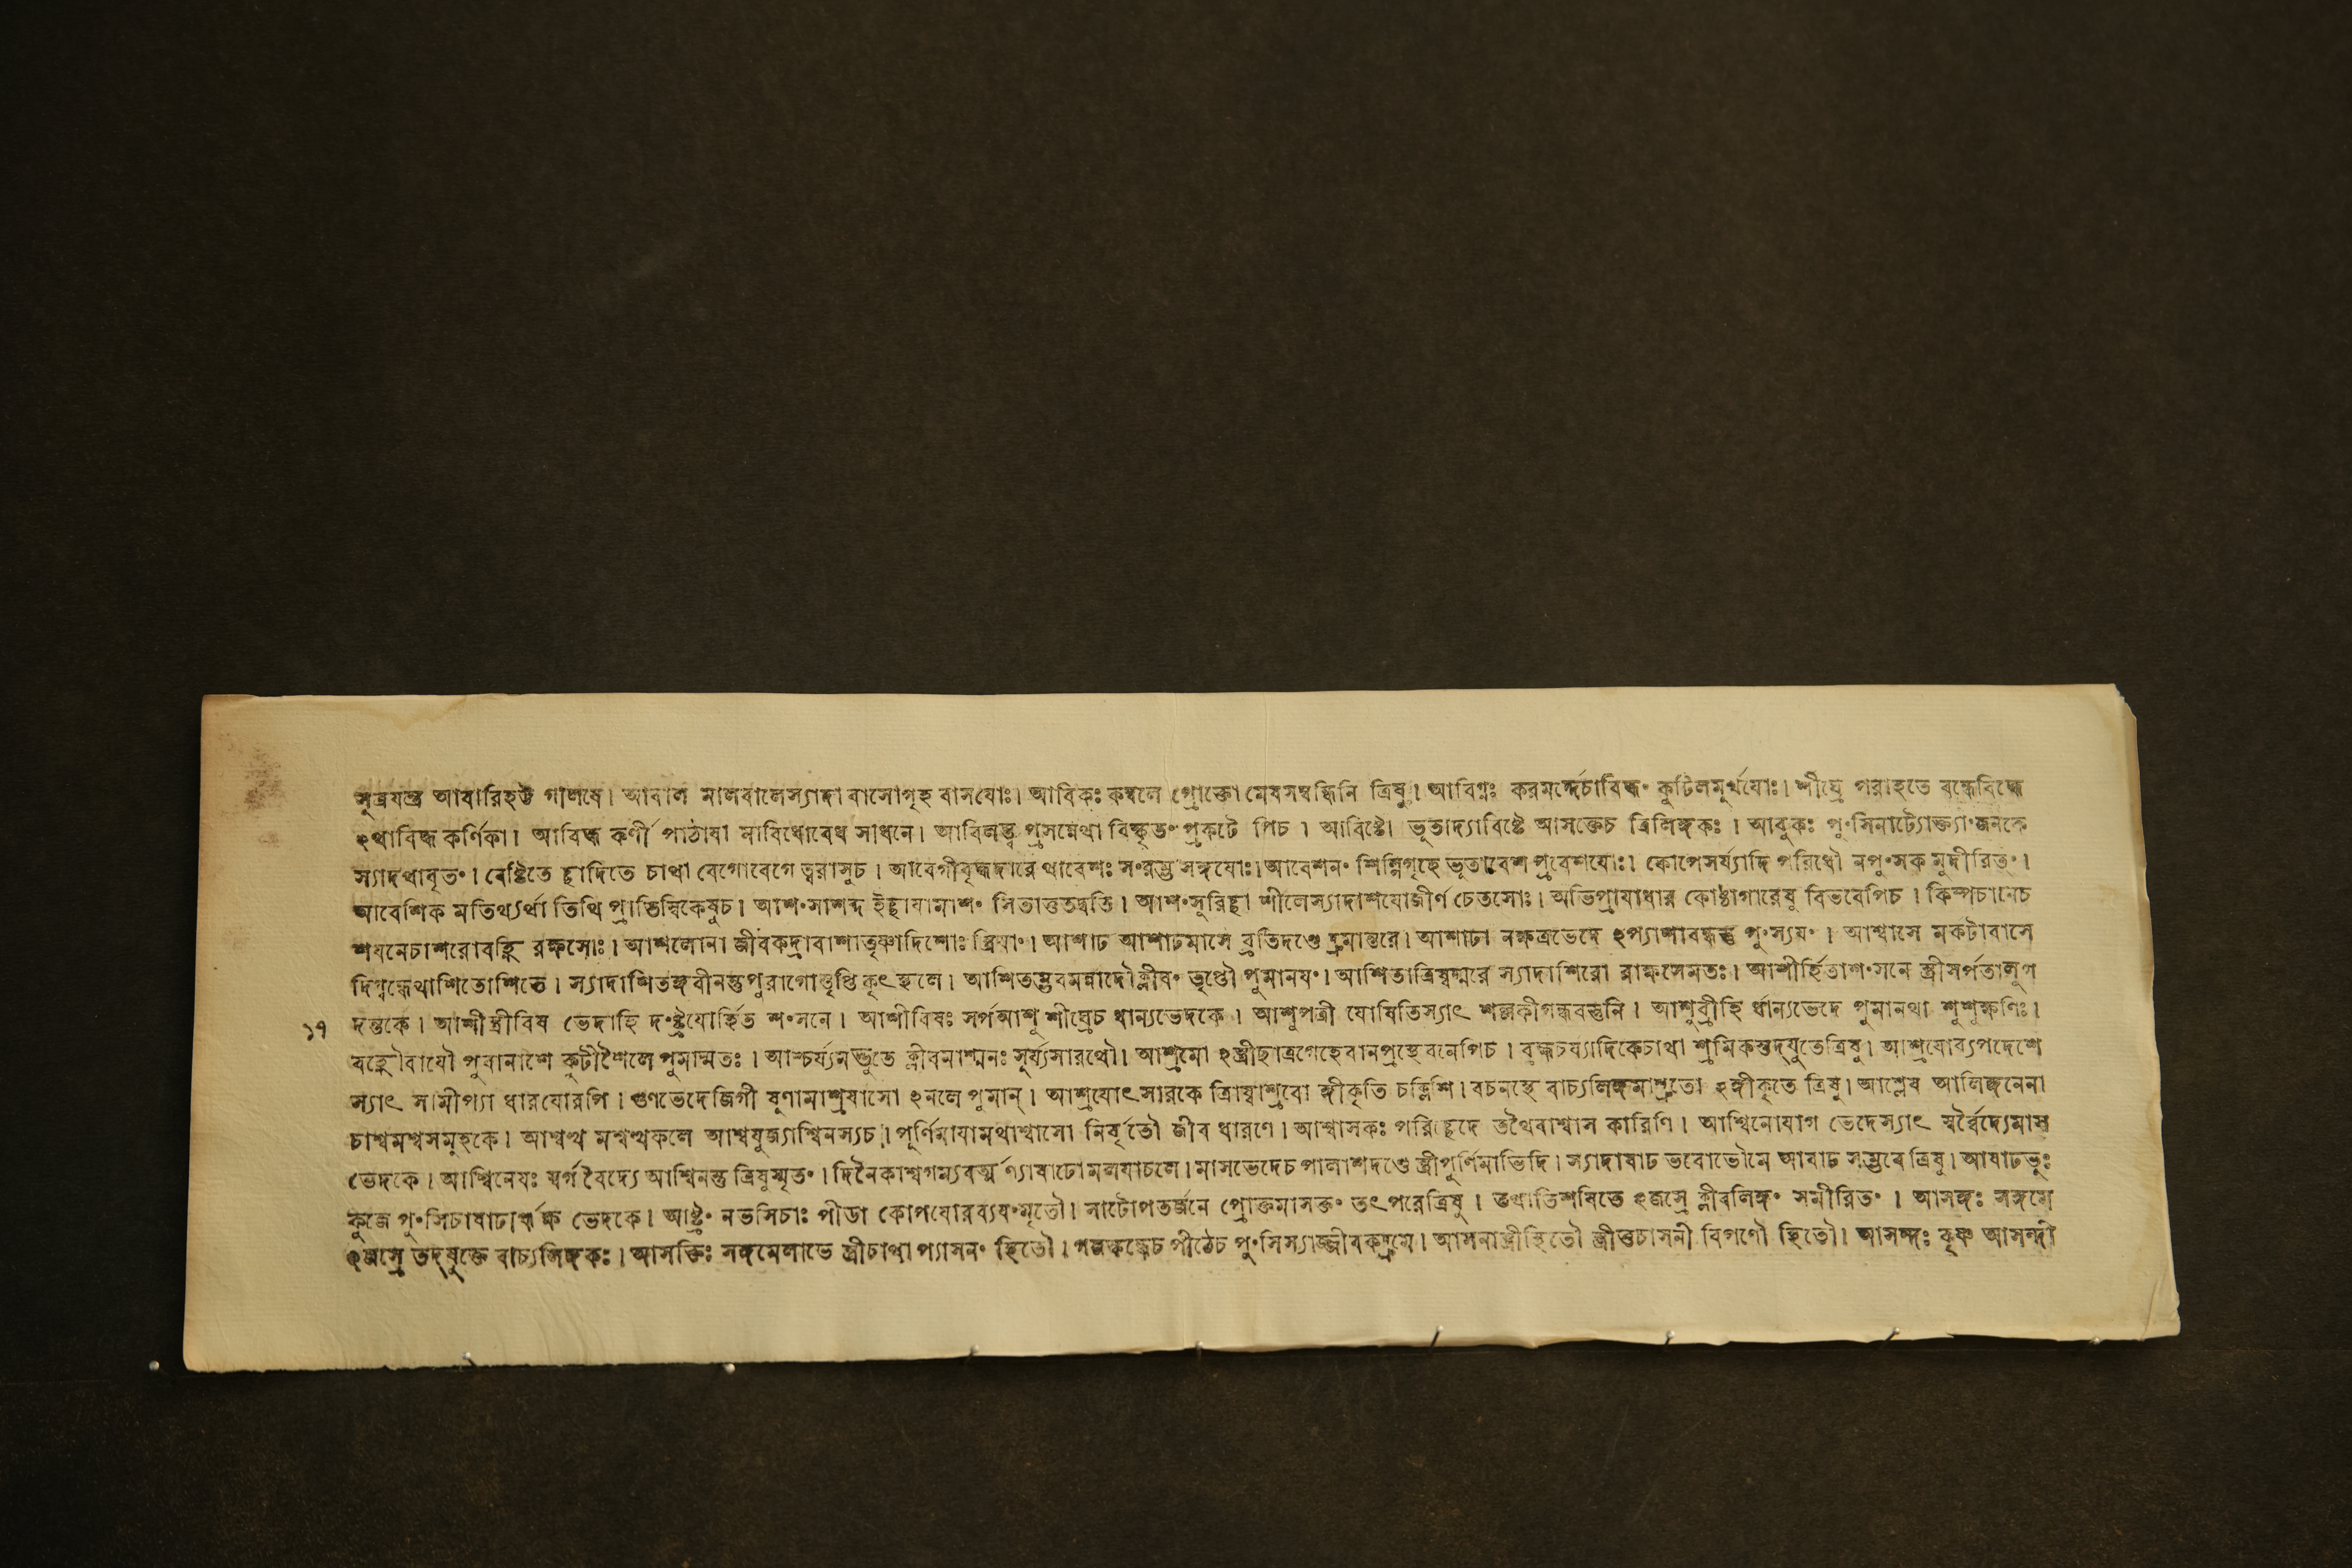 সুত্রযন্ত্র আবারিহট্ট গালষে। আবাল মালবালেস্যাদা বাসোগৃহ বাসযোঃ। আবিকঃ কম্বলে প্রোক্তো মেষসম্বন্ধিনি ত্রিষু। আবিগ্নঃ করমর্দ্দেচাবিদ্ধং কুটিলমুর্খযোঃ। শীঘ্রে পরাহতে বদ্ধেবিদ্ধে
ঽথাবিদ্ধ কর্ণিকা। আবিদ্ধ কর্ণী পাঠাযা মাবিধোবেধ সাধনে। আবিলন্ত্ব প্রসন্নেথা বিষ্কৃতং প্রকটে পিচ। আবিষ্টো ভূতাদ্যাবিষ্টে আসক্তেচ ত্রিলিঙ্গকঃ। আবুকঃ পুংসিনাট্যোক্ত্যাংজনকে
স্যাদথাবৃতং। বেষ্টিতে চ্ছাদিতে চাথা বেগোবেগে ত্বরাসুচ। আবেগীবৃদ্ধদারে থাবেশঃ সংরম্ভ সঙ্গযোঃ। আবেশনং শিল্পিগৃহে ভূতাবেশ প্রবেশযোঃ। কোপেসর্য্যাদি পরিধৌ নপুংসক মুদীরিতং।
আবেশিক মতিথ্যর্থা তিথি প্রাতিস্বিকেষুচ। আশংসাশব্দ ইচ্ছাযামাশং সিতাত্ততদ্বতি। আশংসুরিচ্ছা শীলেস্যাদাশযোজীর্ণ চেতসোঃ। অভিপ্রাযাধার কোষ্ঠাগারেষু বিভবেপিচ। কিম্পচানেচ
শযনেচাশরোবহ্নি রক্ষসোঃ। আশলোনা জীবকদ্রাবাশাতৃষ্ণাদিশোঃ স্ত্রিযাং। আশাঢ আশাঢমাসে ব্রতিদণ্ডে দ্রুমান্তরে। আশাঢা নক্ষত্রভেদে ঽপ্যাশাবন্ধস্তু পুংস্যযং। আশ্বাসে মকটাবাসে
দিগ্বন্ধেথাশিতোশিতে। স্যাদাশিতঙ্গবীনন্তুপুরাগোস্তৃপ্তি কৃৎ স্থলে। আশিতম্ভবমন্নাদৌক্লীবং তৃপ্তৌ পুমানযং। আশিতাত্রিষ্বদ্মরে স্যাদাশিরো রাক্ষসেমতঃ। আশীর্হিতাশংসনে স্ত্রীসর্পতালুগ
১৭ দন্তকে। আশীস্ত্রীবিষ ভেদাহি দংষ্ট্রযোর্হিত শংসনে। আশীবিষঃ সর্পআশু শীঘ্রেচ ধান্যভেদকে। আশুপত্রী যোষিতিস্যাৎ শল্লকীগন্ধবস্তুনি। আশুব্রীহি র্ধান্যভেদে পুমানথা শুশুক্ষণিঃ।
বহ্নৌবাযৌ পুমানাশে কুটীশৈলে পুমান্মতঃ। আশ্চর্য্যনদ্ভুতে ক্লীবমাশ্মনঃ সুর্য্যসারথৌ। আশ্রমো ঽস্ত্রীছাত্রগেহেবানপ্রস্থেবনেপিচ। ব্রহ্মচর্য্যাদিকেচাথা শ্রমিকস্তদ্যুতেত্রিষু। আশ্রযোব্যপদেশে
স্যাৎ সামীপ্যা ধারযোরপি। গুণভেদেজিগী ষুণামাশ্রযাসো ঽনলে পুমান্। আশ্রযোৎসারকে ত্রিম্বাশ্রবো ঙ্গীকৃতি চক্লিশি। বচনস্থে বাচ্যলিঙ্গমাশ্রুতো ঽঙ্গীকৃতে ত্রিষু। আশ্লেষ আলিঙ্গনেনা
চাশ্বমশ্বসমুহকে। আশ্বত্থ মশ্বত্থফলে আশ্বযুজ্যাশ্বিনস্যচ। পূর্ণিমাযামথাশ্বাসো নির্বৃতৌ জীব ধারণে। আশ্বাসকঃ পরিচ্ছেদে তথৈবাশ্বাস কারিণি। আশ্বিনোযাগ ভেদেস্যাৎ স্বর্বৈদ্যেমাস
ভেদকে। আশ্বিনেযঃ স্বর্গ বৈদ্যে আশ্বিনন্তু ত্রিষুস্মৃতং। দিনৈকাশ্বগম্যবর্ত্ম ণ্যাষাঢোমলযাচলে। মাসভেদেচ পালাশদণ্ডে স্ত্রীপূর্ণিমাভিদি। স্যাদাষাঢ ভবোভৌমে আষাঢ সম্ভবে ত্রিষু। আষাঢভুঃ
কুজে পুংসিচাষাঢার্ক্ষ ভেদকে। আষ্ট্রং নভসিচাঃ পীডা কোপযোরব্যযংমৃতৌ। সাটোপতর্জনে প্রোক্তমাসক্তং তৎ পরেত্রিষু। তথাতিশযিতে ঽজস্রে ক্লীবলিঙ্গং সমীরিতং। আসঙ্গঃ সঙ্গমে
ঽজস্রে তদ্যুক্তে বাচ্যলিঙ্গকঃ। আসক্তিঃ সঙ্গমেলাভে স্ত্রীচাথা প্যাসনং স্থিতৌ। গজস্কন্ধেচ পীঠেচ পুংসিস্যাজ্জীবকদ্রুমে। আসনাস্ত্রীস্থিতৌ স্ত্রীতুচাসনী বিপণৌ স্থিতৌ। আসন্দঃ কৃষ্ণ আসন্দী